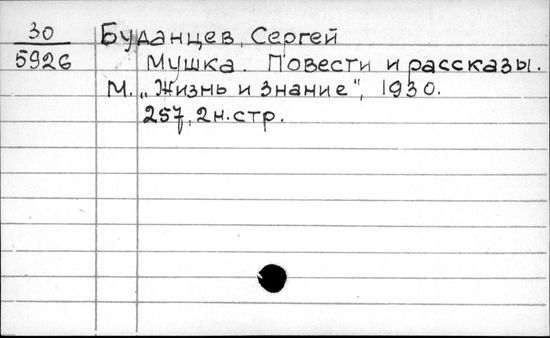 30
5926
Буданцев, Сергей
Мушка. Повести и рассказы.
М. „Жизнь и знание", 1930.
257, 2н.стр.